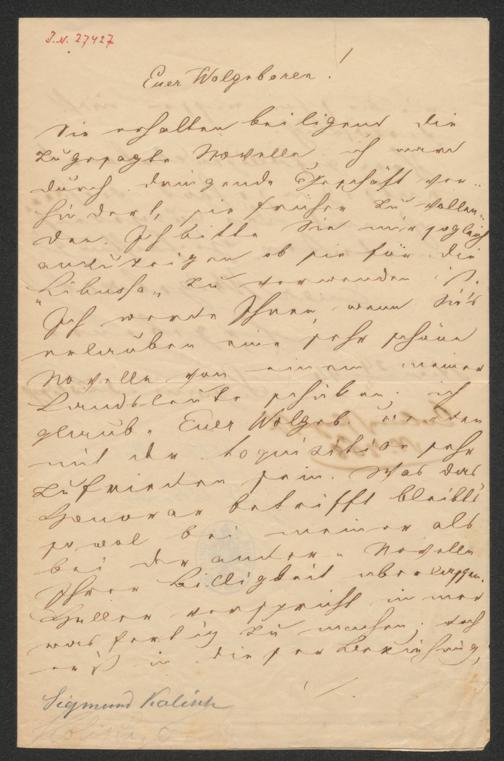 J.N. 27427
Euer Wolgeboren!
Sie erhalten beiligend die
zugesagte Novelle, ich ware
durch dringende Geschäft ver-
hindert, sie früher zu vollen-
den. Ich bitte Sie mir sogleich
anzuzeigen ob sie für die
"Libussa" zu verwenden ist.
Ich werde Ihnen, wenn Sie's
erlauben eine sehr schöne
Novelle von einem meiner
Landsleute schicken; ich
glaube Euer Wolgeb. werden
mit der Acquisition sehr
zufrieden sein. Was das
Honorar betrifft bleibt's
so wol bei meiner als
bei der andern Novelle
Ihrer Billigkeit überlassen.
verspricht immer
was fertig zu machen; doch
er ist in dieser Beziehung,
Sigmund Kolisch